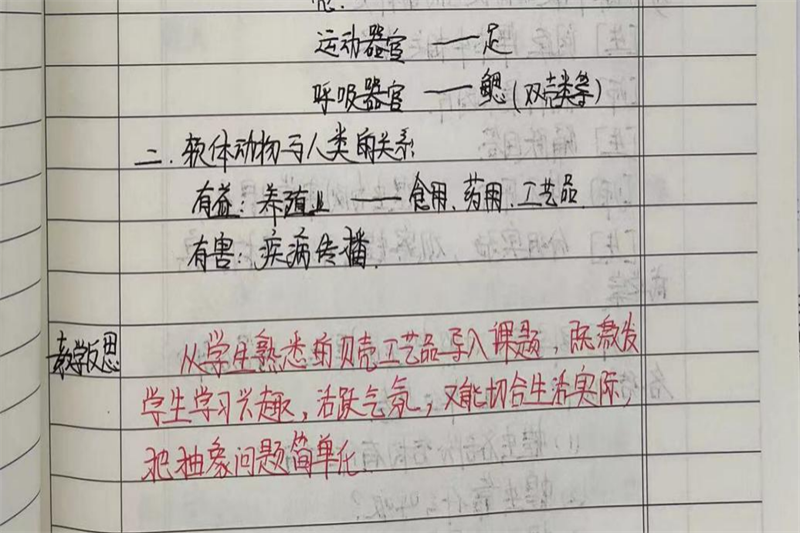 运动器官——足
呼吸器官——鳃(双壳类等)
二.软体动物与人类的关系:
有益:养殖业——食用、药用、工艺品.
有害:疾病传播.
教学反思
从学生熟悉的贝壳工艺品导入课题,既激发
学生学习兴趣,活跃气氛,又能切合生活实际,
把抽象问题简单化.